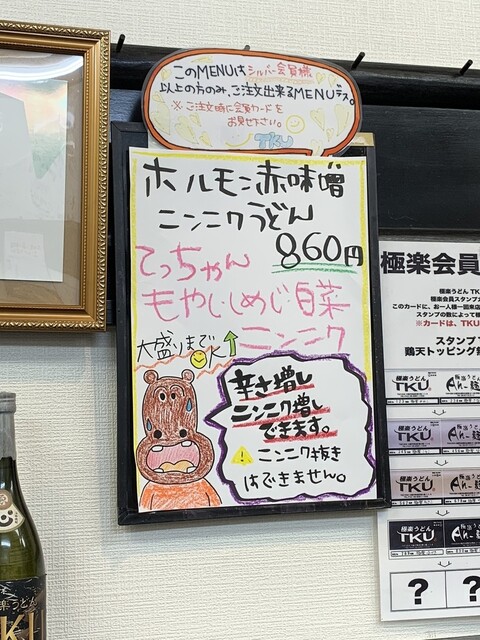 このMENUはシルバー会員様
以上の方のみ、ご注文出来るMENUデス。
※ご注文時に会員カードを
お見せ下さい。
TKU
ホルモン赤味噌
ニンニクうどん
860円
てっちゃん
もやし・しめじ・白菜
ニンニク
大盛りまでOK
辛さ増し
ニンニク増し
できます。
ニンニク抜き
はできません。
極楽会員
極楽うどん TK
極楽会員スタンプカ
このカードに、お一人様一回来店
スタンプの数によって極
※カードは、TKU
スタンプ
鶏天トッピング無
極楽うどん
TKU
極楽うどん
TKU
極楽うどん
TKU
極楽うどん
TKU
?
?
楽うどん